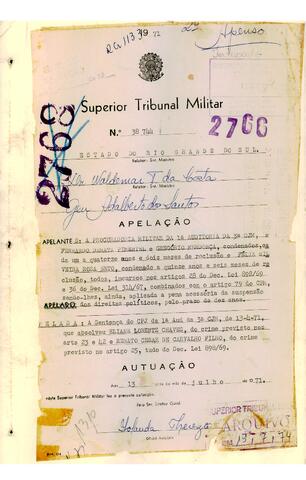 RG 1139 72
Apenso
Superior Tribunal Militar
N.º 38 744
2766
2768
ESTADO DO RIO GRANDE DO SUL.
Relator: Snr. Ministro
Waldemar T. da Costa
Revisor: Snr. Ministro
Adalberto dos Santos
APELAÇÃO
APELANTE S: A PROCURADORIA MILITAR DA 1ª AUDITORIA DA 3ª CJM, e
FERNANDO PIMENTEL e GREGÓRIO MENDONÇA, condenados, ca
da um a quatorze anos e dois meses de reclusão e FELIX SIL
VEIRA ROSA NETO, condenado a quinze anos e seis meses de re
clusão, todos, incursos nos artigos 28 do Dec. Lei 898/69
e 36 do Dec. Lei 314/67, combinados com o artigo 79 do CPM,
sendo-lhes, ainda, aplicada a pena acessória da suspensão
APELADO: dos direitos políticos, pelo prazo de dez anos.
A Sentença do CPJ da 1ª Aud da 3ª CJM, de 13-4-71,
que absolveu ELIANA LORENTZ CHAVES, do crime previsto nos
arts 23 e 42 e RENATO CESAR DE CARVALHO FILHO, do crime
previsto no artigo 25, tudo do Dec. Lei 898/69.
AUTUAÇÃO
Aos 13 dias do mês de julho de 1971.
neste Superior Tribunal Militar fez a presente autuação.
Pelo Snr. Diretor Geral
Yolanda Thereza
Oficial Judiciário
SUPERIOR TRIBUNAL
ARQUIVO